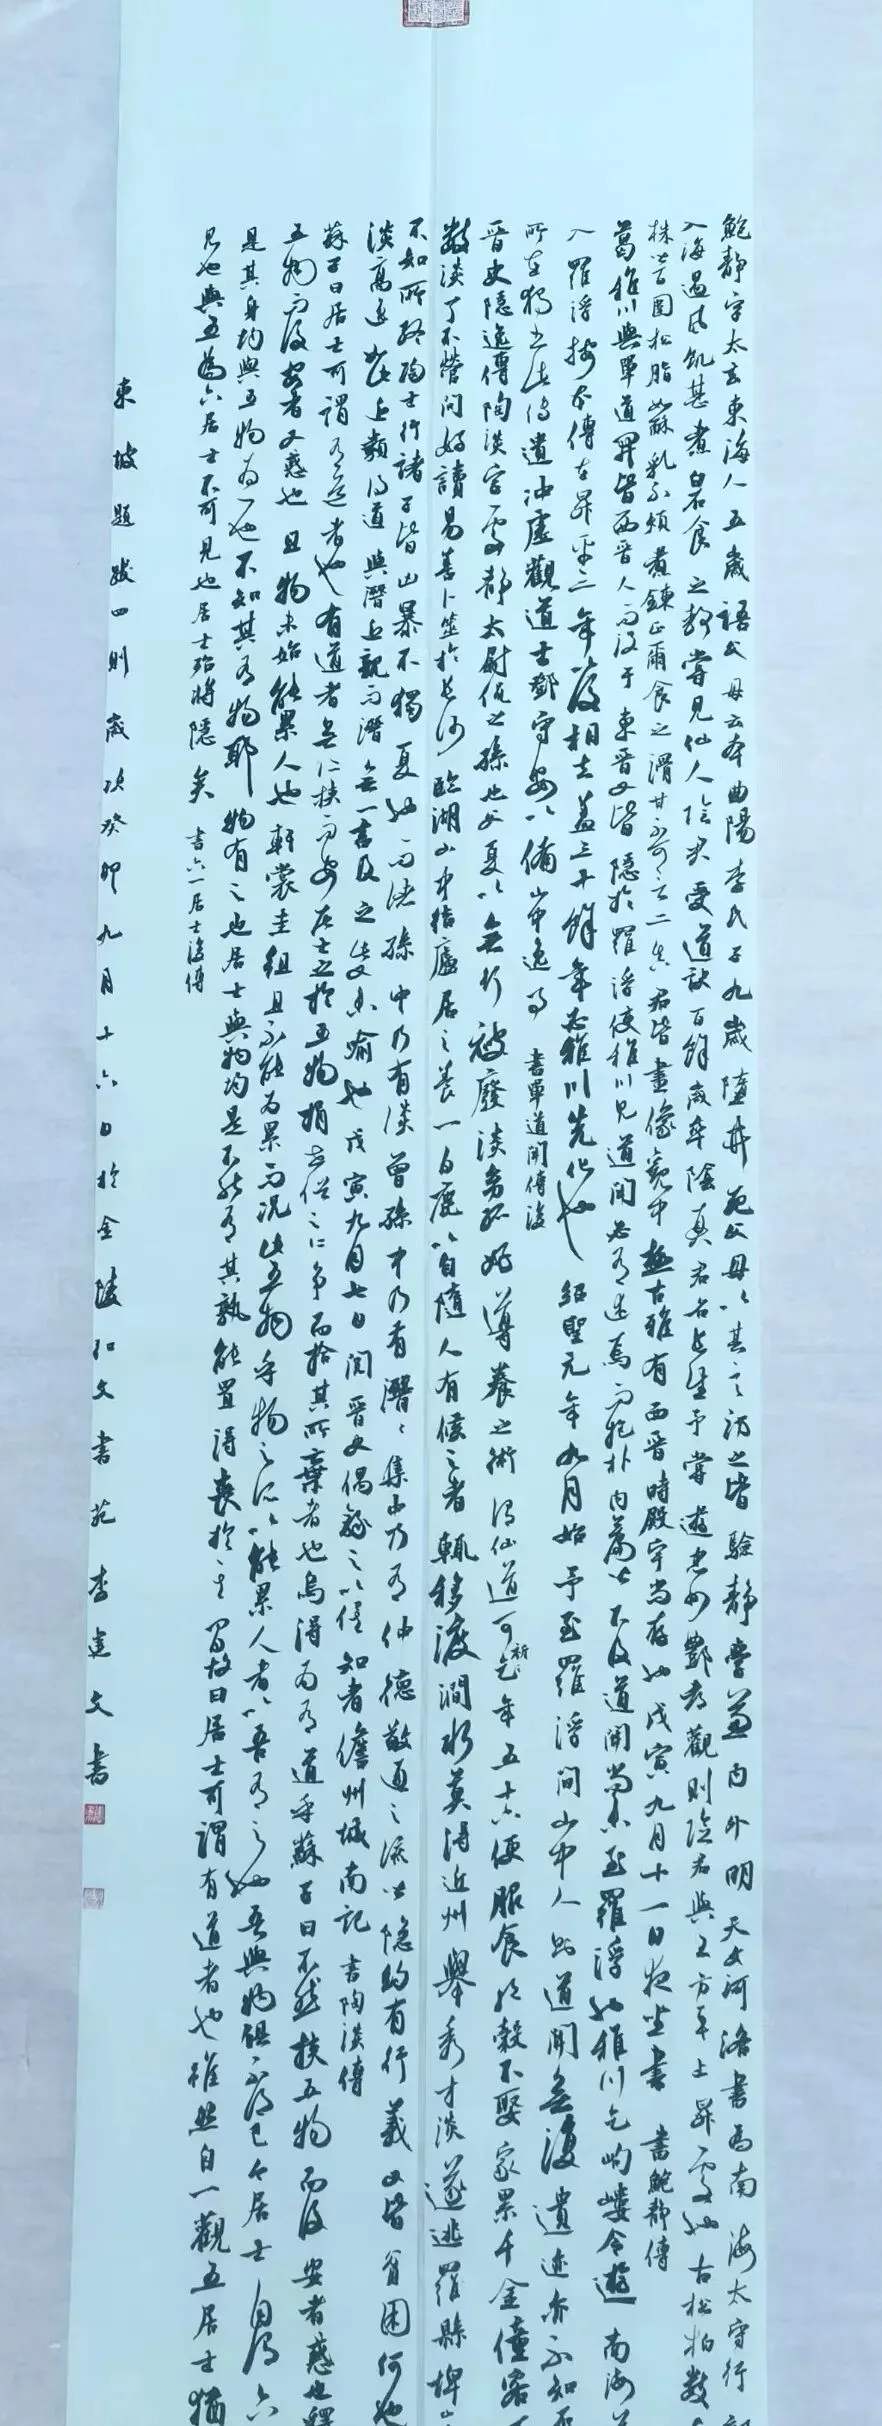 鮑靜字太玄東海人五歲語父母云本曲陽李氏子九歲墮井死父母以其言訪之皆驗靜學兼內外明天文河洛書為南海太守行
入海遇風飢甚煮白石食之嘗見仙人陰君受道訣百餘歲卒陰真君名長生予嘗遊忠州酆都觀則陰君與王方平上昇處也古松柏數
株皆固松脂如酥乳不煩煮鍊正爾食之滑甘不可言二真君皆畫像觀中極古雅有西晉時殿宇尚存也戊寅九月十一日夜坐書 書鮑靜傳
葛稚川與單道開皆西晉人而沒于東晉又皆隱於羅浮使稚川見道開必有述焉而抱朴內篇皆不及道開豈未至羅浮也稚川乞岣嶁令遊南海
入羅浮按本傳在昇平三年以後相去蓋三十餘年必稚川先化也 紹聖元年九月始予至羅浮問山中人則道開無復遺迹亦不知
所在獨書此傳遺沖虛觀道士鄧守安以備山中逸事 書單道開傳後
晉史隱逸傳陶淡字處靜太尉侃之孫也父夏以無行被廢淡幼孤好導養之術謂仙道可祈年五十六便服食絕穀不娶家累千金僮客
數淡了不營問好讀易善卜筮於長沙臨湖山中結廬居之養一白鹿以自隨人有候之者輒移渡澗水莫得近州舉秀才淡遂逃羅縣埤山
不知所終陶士行諸子皆凶暴不獨夏也而諸孫中乃有淡曾孫中乃有潛潛集中乃有仲德敬通之流皆隱約有行義又皆貧困何也
淡高逸如此近類得道與潛近親而潛無一言及之此又未喻也戊寅九月七日閱晉史偶錄之以俟知者儋州城南記 書陶淡傳
蘇子曰居士可謂有道者也有道者無所挾而安居士之於五物捐世俗之所爭而拾其所棄者也烏得為有道乎蘇子曰不然挾五物而後安者惑也釋
五物而後安者又惑也且物未始能累人也軒裳圭組且不能為累而況此五物乎物之所以能累人者以吾有之也吾與物俱不得已
是其身均與五物為一也不知其有物耶物有之也居士與物均是不能有其孰能置得喪於其間故曰居士可謂有道者也雖然自一觀五居士猶
見也與五為六居士不可見也居士殆將隱矣 書六一居士後傳
東坡題跋四則 歲次癸卯九月十六日於金陵知文書苑李建文書